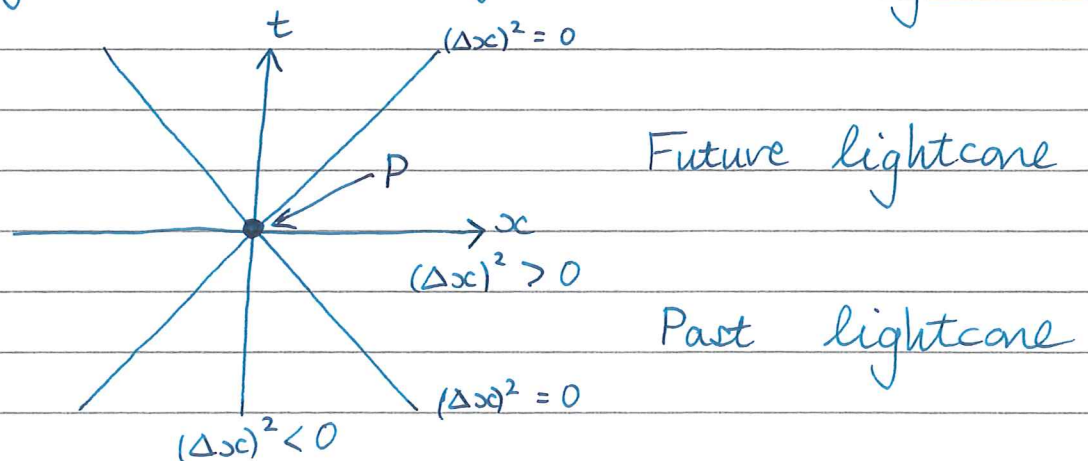 t
(Δx)² = 0
Future lightcone
P
x
(Δx)² > 0
Past lightcone
(Δx)² = 0
(Δx)² < 0